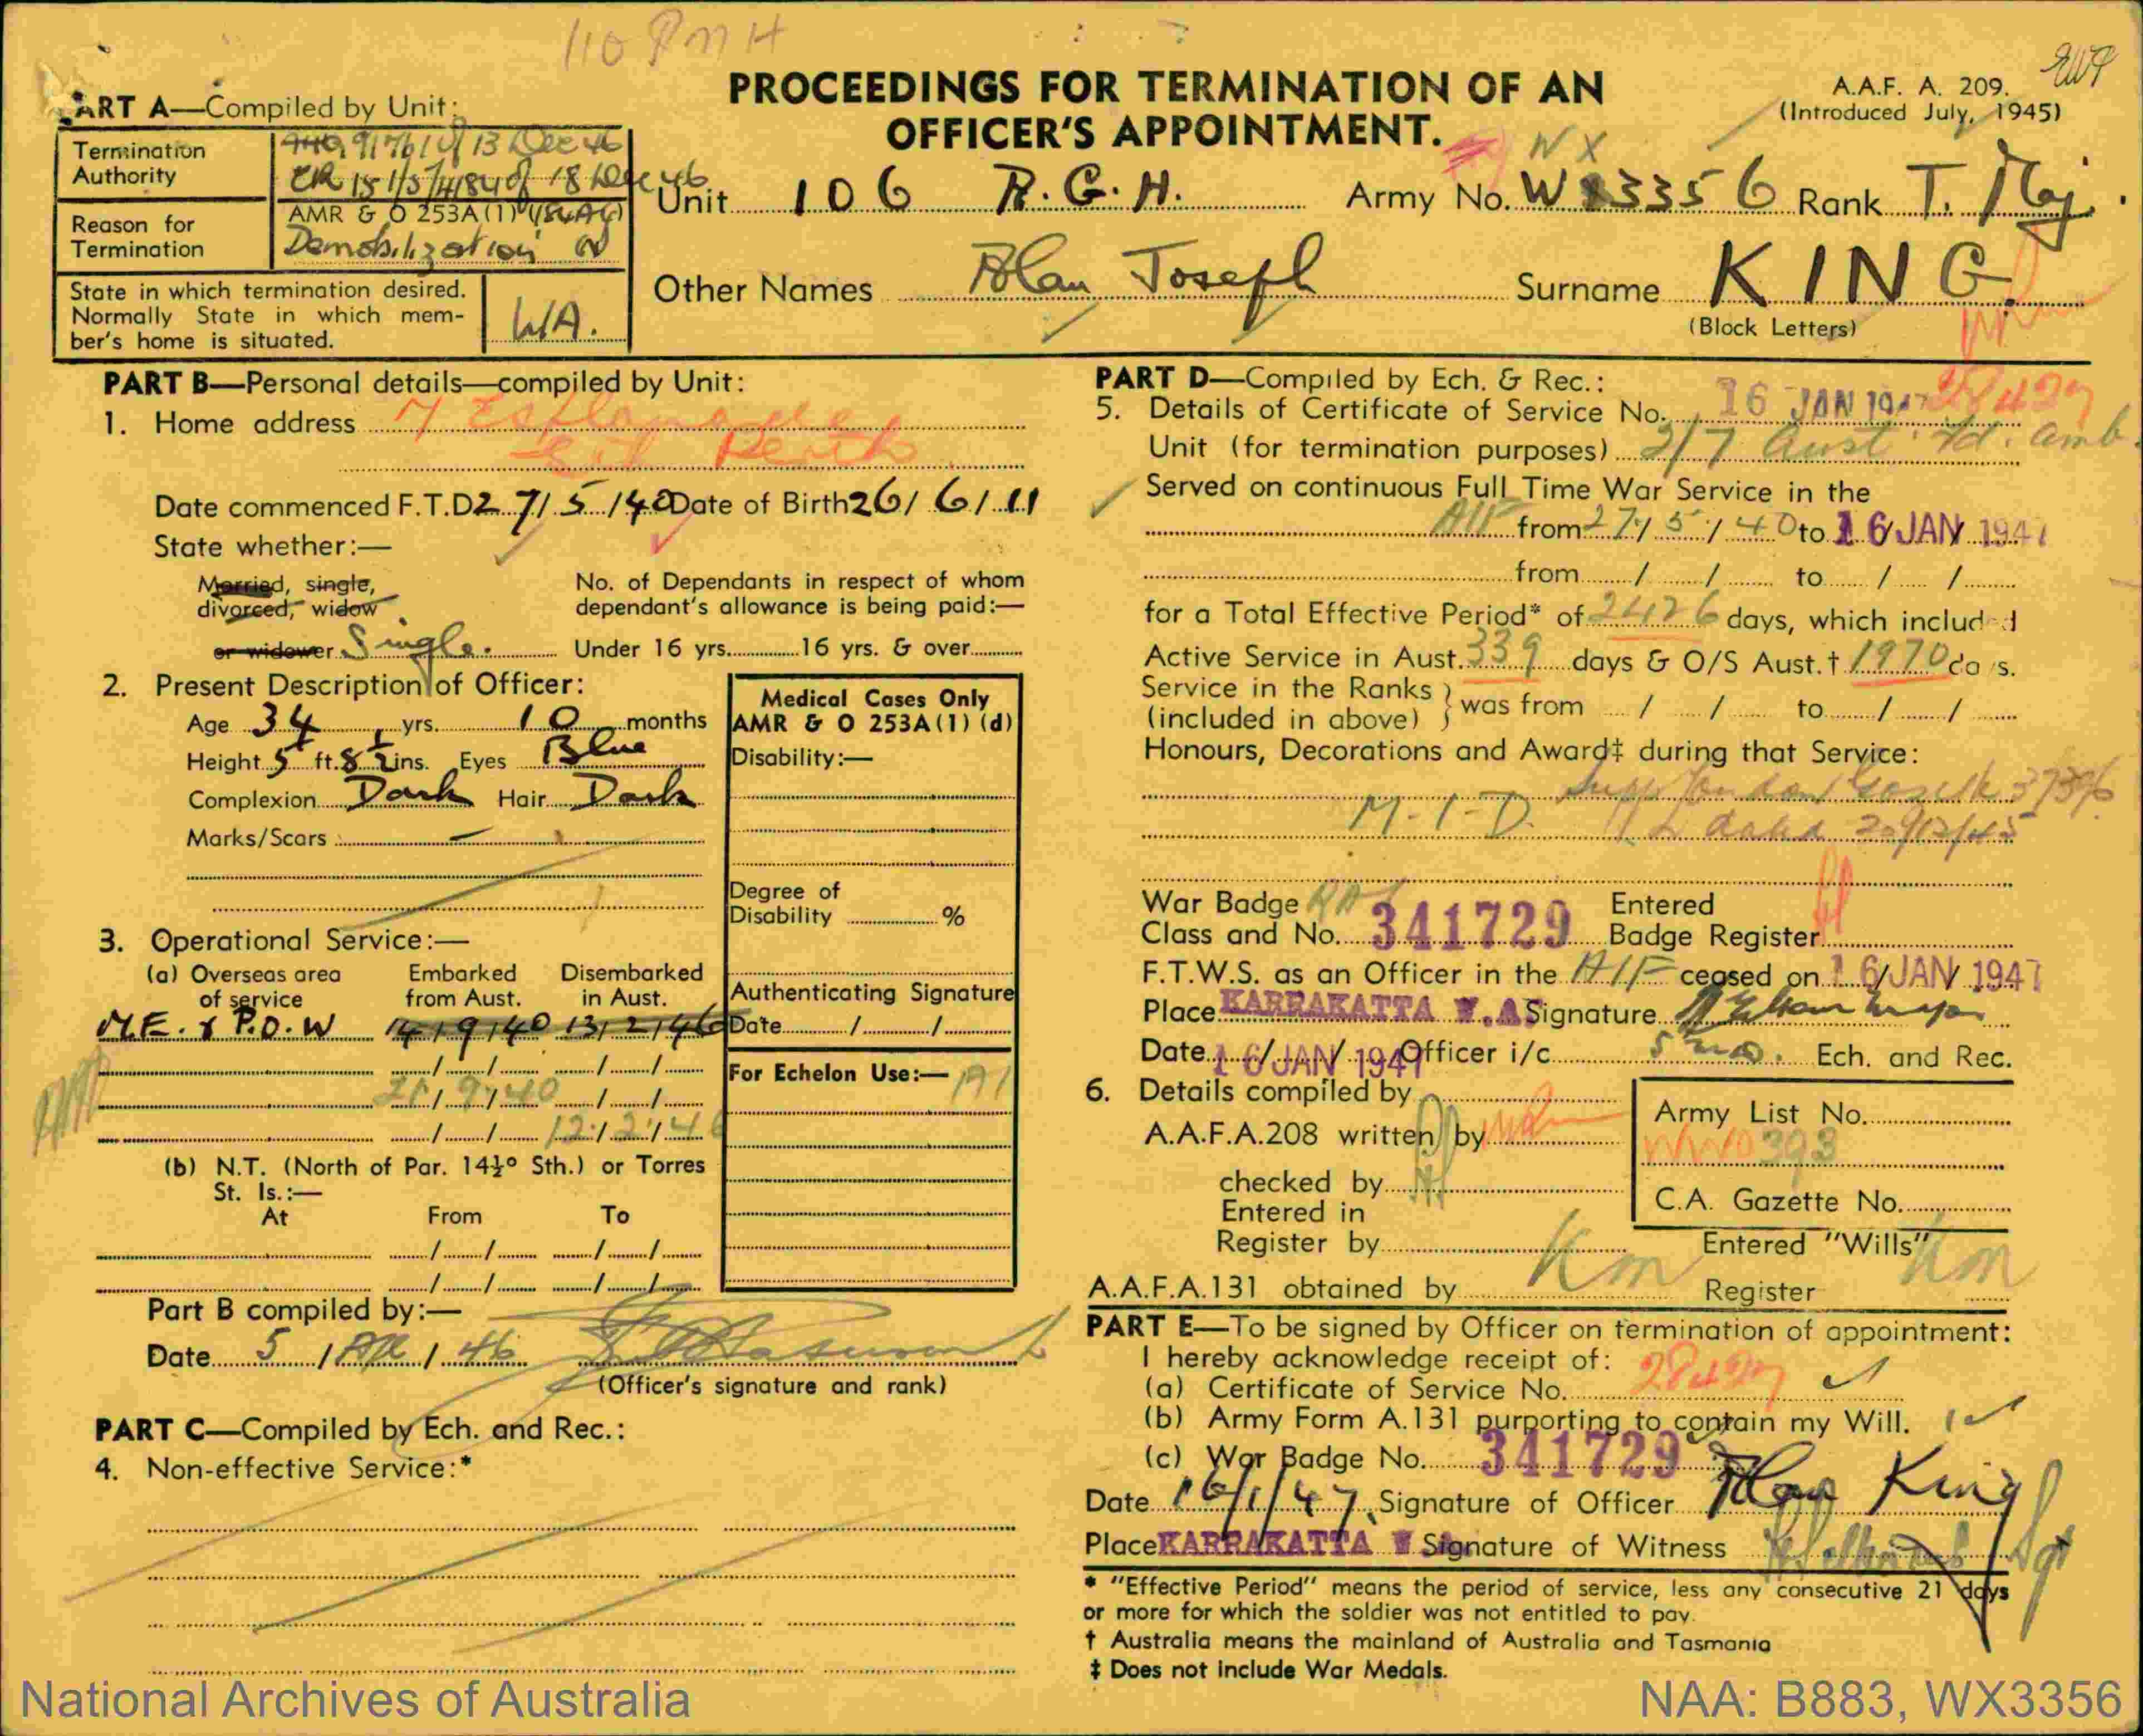 110 P M H
PROCEEDINGS FOR TERMINATION OF AN
OFFICER'S APPOINTMENT.
A.A.F. A. 209.
(Introduced July, 1945)
PART A—Compiled by Unit:
Termination
Authority
13 Dec 46
18 Dec 46
Reason for
Termination
AMR & O 253A(1)
Demobilization
State in which termination desired.
Normally State in which mem-
ber's home is situated.
WA.
Unit 106 R.G.H. Army No. WX3356 Rank T. Maj.
WX
Other Names Alan Joseph Surname KING.
(Block Letters)
PART B—Personal details—compiled by Unit:
1. Home address 7 Esplanade
Perth
Date commenced F.T.D 27/5/40 Date of Birth 26/6/11
State whether:—
Married, single,
divorced, widow
or widower Single.
No. of Dependants in respect of whom
dependant's allowance is being paid:—
Under 16 yrs. 16 yrs. & over
2. Present Description of Officer:
Age 34 yrs. 10 months
Height 5 ft. 8½ ins. Eyes Blue
Complexion Dark Hair Dark
Marks/Scars —
Medical Cases Only
AMR & O 253A(1) (d)
Disability:—
Degree of
Disability %
Authenticating Signature
Date / /
For Echelon Use:— A1
3. Operational Service:—
(a) Overseas area of service
Embarked from Aust.
Disembarked in Aust.
M.E. & P.O.W 14/9/40 13/2/46
/ / / /
/9/40 / /
/ / 12/2/46
(b) N.T. (North of Par. 14½° Sth.) or Torres
St. Is.:—
At From To
/ / / /
/ / / /
Part B compiled by:—
Date 5/ /46
(Officer's signature and rank)
PART C—Compiled by Ech. and Rec.:
4. Non-effective Service:*
PART D—Compiled by Ech. & Rec.:
5. Details of Certificate of Service No. 16 JAN 1947 28427
Unit (for termination purposes) 2/7 Aust. Fd. Amb.
Served on continuous Full Time War Service in the
AIF from 27/5/40 to 16 JAN 1947
from / / to / /
for a Total Effective Period* of 2426 days, which included
Active Service in Aust. 339 days & O/S Aust.† 1970 days.
Service in the Ranks
(included in above) } was from / / to / /
Honours, Decorations and Award‡ during that Service:
M-I-D. Supp London Gazette 37396
dated 20/12/45
War Badge RAS
Class and No. 341729
Entered
Badge Register
F.T.W.S. as an Officer in the AIF ceased on 16 JAN 1947
Place KARRAKATTA W.A Signature
Date 16 JAN 1947 Officer i/c Ech. and Rec.
6. Details compiled by
A.A.F.A.208 written by
checked by
Entered in
Register by Km
A.A.F.A.131 obtained by
Army List No.
C.A. Gazette No.
Entered "Wills"
Register Km
PART E—To be signed by Officer on termination of appointment:
I hereby acknowledge receipt of:
(a) Certificate of Service No. 28427
(b) Army Form A.131 purporting to contain my Will.
(c) War Badge No. 341729
Date 16/1/47 Signature of Officer Alan King
Place KARRAKATTA W Signature of Witness Sgt
* "Effective Period" means the period of service, less any consecutive 21 days
or more for which the soldier was not entitled to pay.
† Australia means the mainland of Australia and Tasmania
‡ Does not include War Medals.
National Archives of Australia
NAA: B883, WX3356